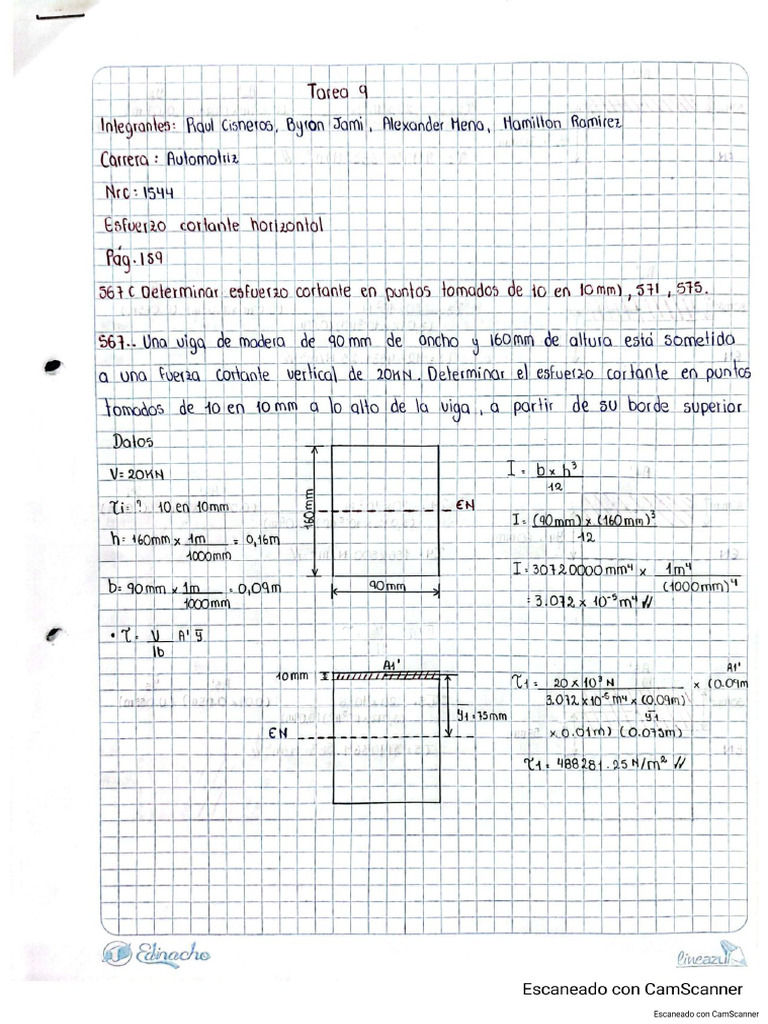 Tarea 9
Integrantes: Raul Cisneros, Byron Jami, Alexander Mena, Hamilton Ramirez
Carrera: Automotriz
Nrc: 1544
Esfuerzo cortante horizontal
Pág. 159
567 ( Determinar esfuerzo cortante en puntos tomados de 10 en 10 mm), 571, 575.
567.. Una viga de madera de 90 mm de ancho y 160 mm de altura está sometida
a una fuerza cortante vertical de 20KN. Determinar el esfuerzo cortante en puntos
tomados de 10 en 10 mm a lo alto de la viga, a partir de su borde superior
Datos
V= 20KN
τi= ? 10 en 10mm
h= 160mm x 1m/1000mm = 0,16m
b= 90mm x 1m/1000mm = 0,09m
• τ= V/Ib A' ȳ
160mm
EN
90mm
I = b x h³/12
I = (90mm) x (160mm)³/12
I = 30720000 mm⁴ x 1m⁴/(1000mm)⁴
= 3.072 x 10⁻⁵ m⁴ //
10mm
A1'
ȳ1 = 75mm
EN
τ1 = 20 x 10³ N/3.072 x 10⁻⁵ m⁴ x (0.09m) x (0.09m
A1'
ȳ1
x 0.01m) (0.075m)
τ1 = 488281.25 N/m² //
Edinacho
lineazul
Escaneado con CamScanner
Escaneado con CamScanner